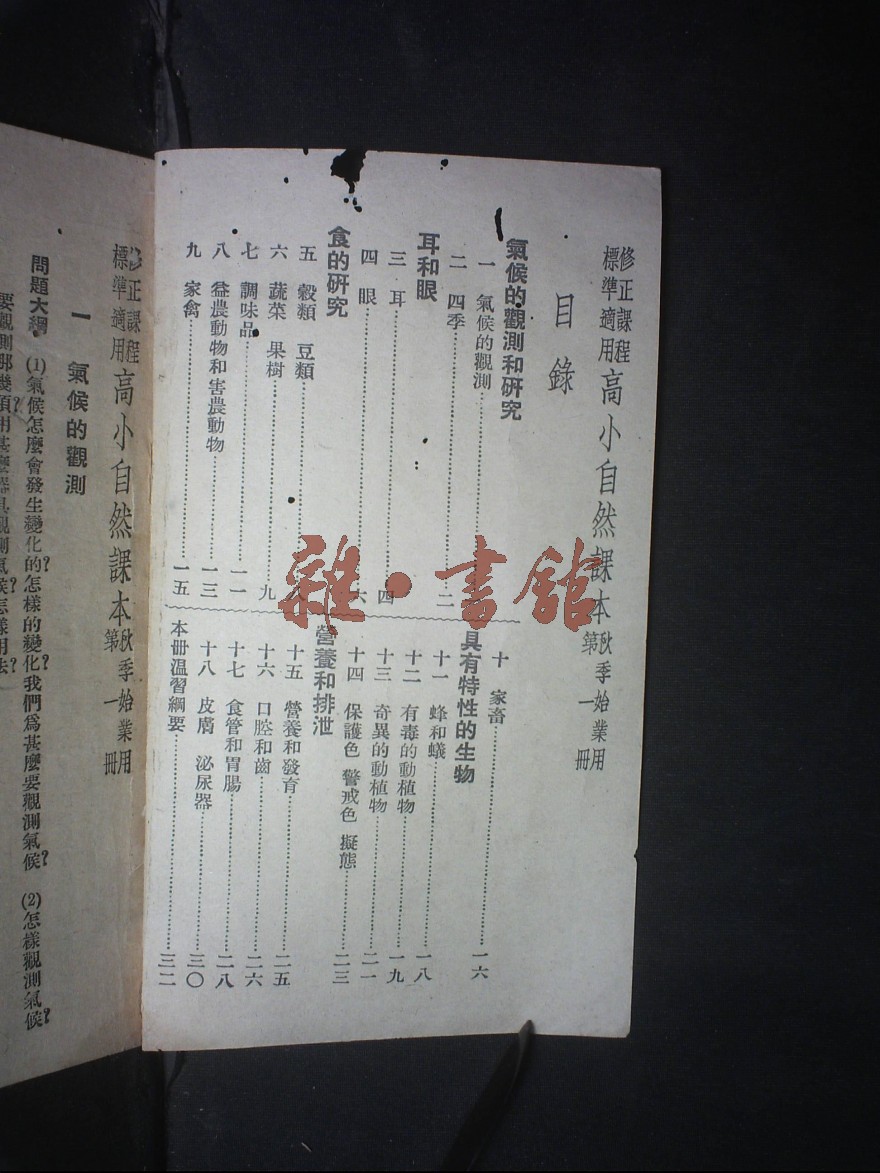 修正課程
標準適用
高小自然課本
秋季始業用
第一冊
目錄
氣候的觀測和研究
一 氣候的觀測
二 四季……二
耳和眼
三 耳……四
四 眼……六
食的研究
五 穀類 豆類
六 蔬菜 果樹……九
七 調味品……一一
八 益農動物和害農動物……一三
九 家禽……一五
十 家畜……一六
具有特性的生物
十一 蜂和蟻……一八
十二 有毒的動植物……一九
十三 奇異的動植物……二一
十四 保護色 警戒色 擬態……二三
營養和排泄
十五 營養和發育……二五
十六 口腔和齒……二六
十七 食管和胃腸……二八
十八 皮膚 泌尿器……三〇
本冊温習綱要……三二
雜·書館
修正課程
標準適用
高小自然課本
秋季始業用
第一冊
一 氣候的觀測
問題大綱 (1)氣候怎麼會發生變化的?怎樣的變化?我們爲甚麼要觀測氣候? (2)怎樣觀測氣候?
要觀測那幾項?用甚麼器具觀測氣候?怎樣用法?